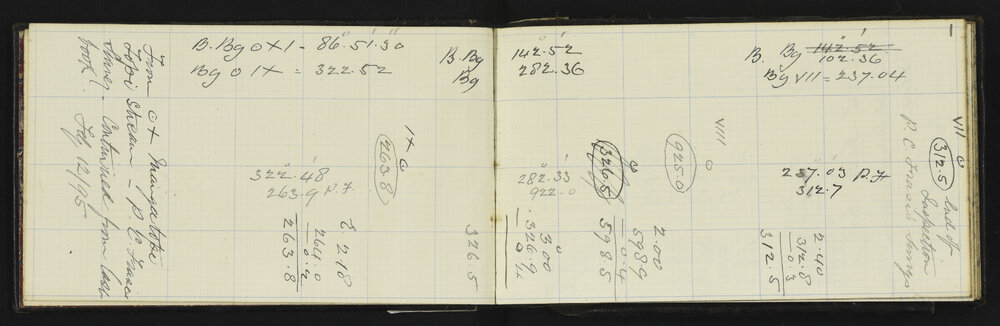 From OX Mangatoki
Topi stream - P. C.
Survey - Contained from last
book! Feb 12/95
B. Bg OX1 - 86.51.30
Bg O 1X = 322.52
B. Bg
Bg
1X
263.8
322.48
263.9 P.F
2.18
264.0
0.2
263.8
326.5
142.52
282.36
282.33
922.0
3.00
326.9
326.5
598.5
2.00
598.9
0.4
925.0
VIII
B. Bg 142.52
102.36
Bg VII = 237.04
237.03 P.F
312.7
2.40
312.8
0.3
312.5
VII
312.5
End of
Inspection
P. C. Survey
1